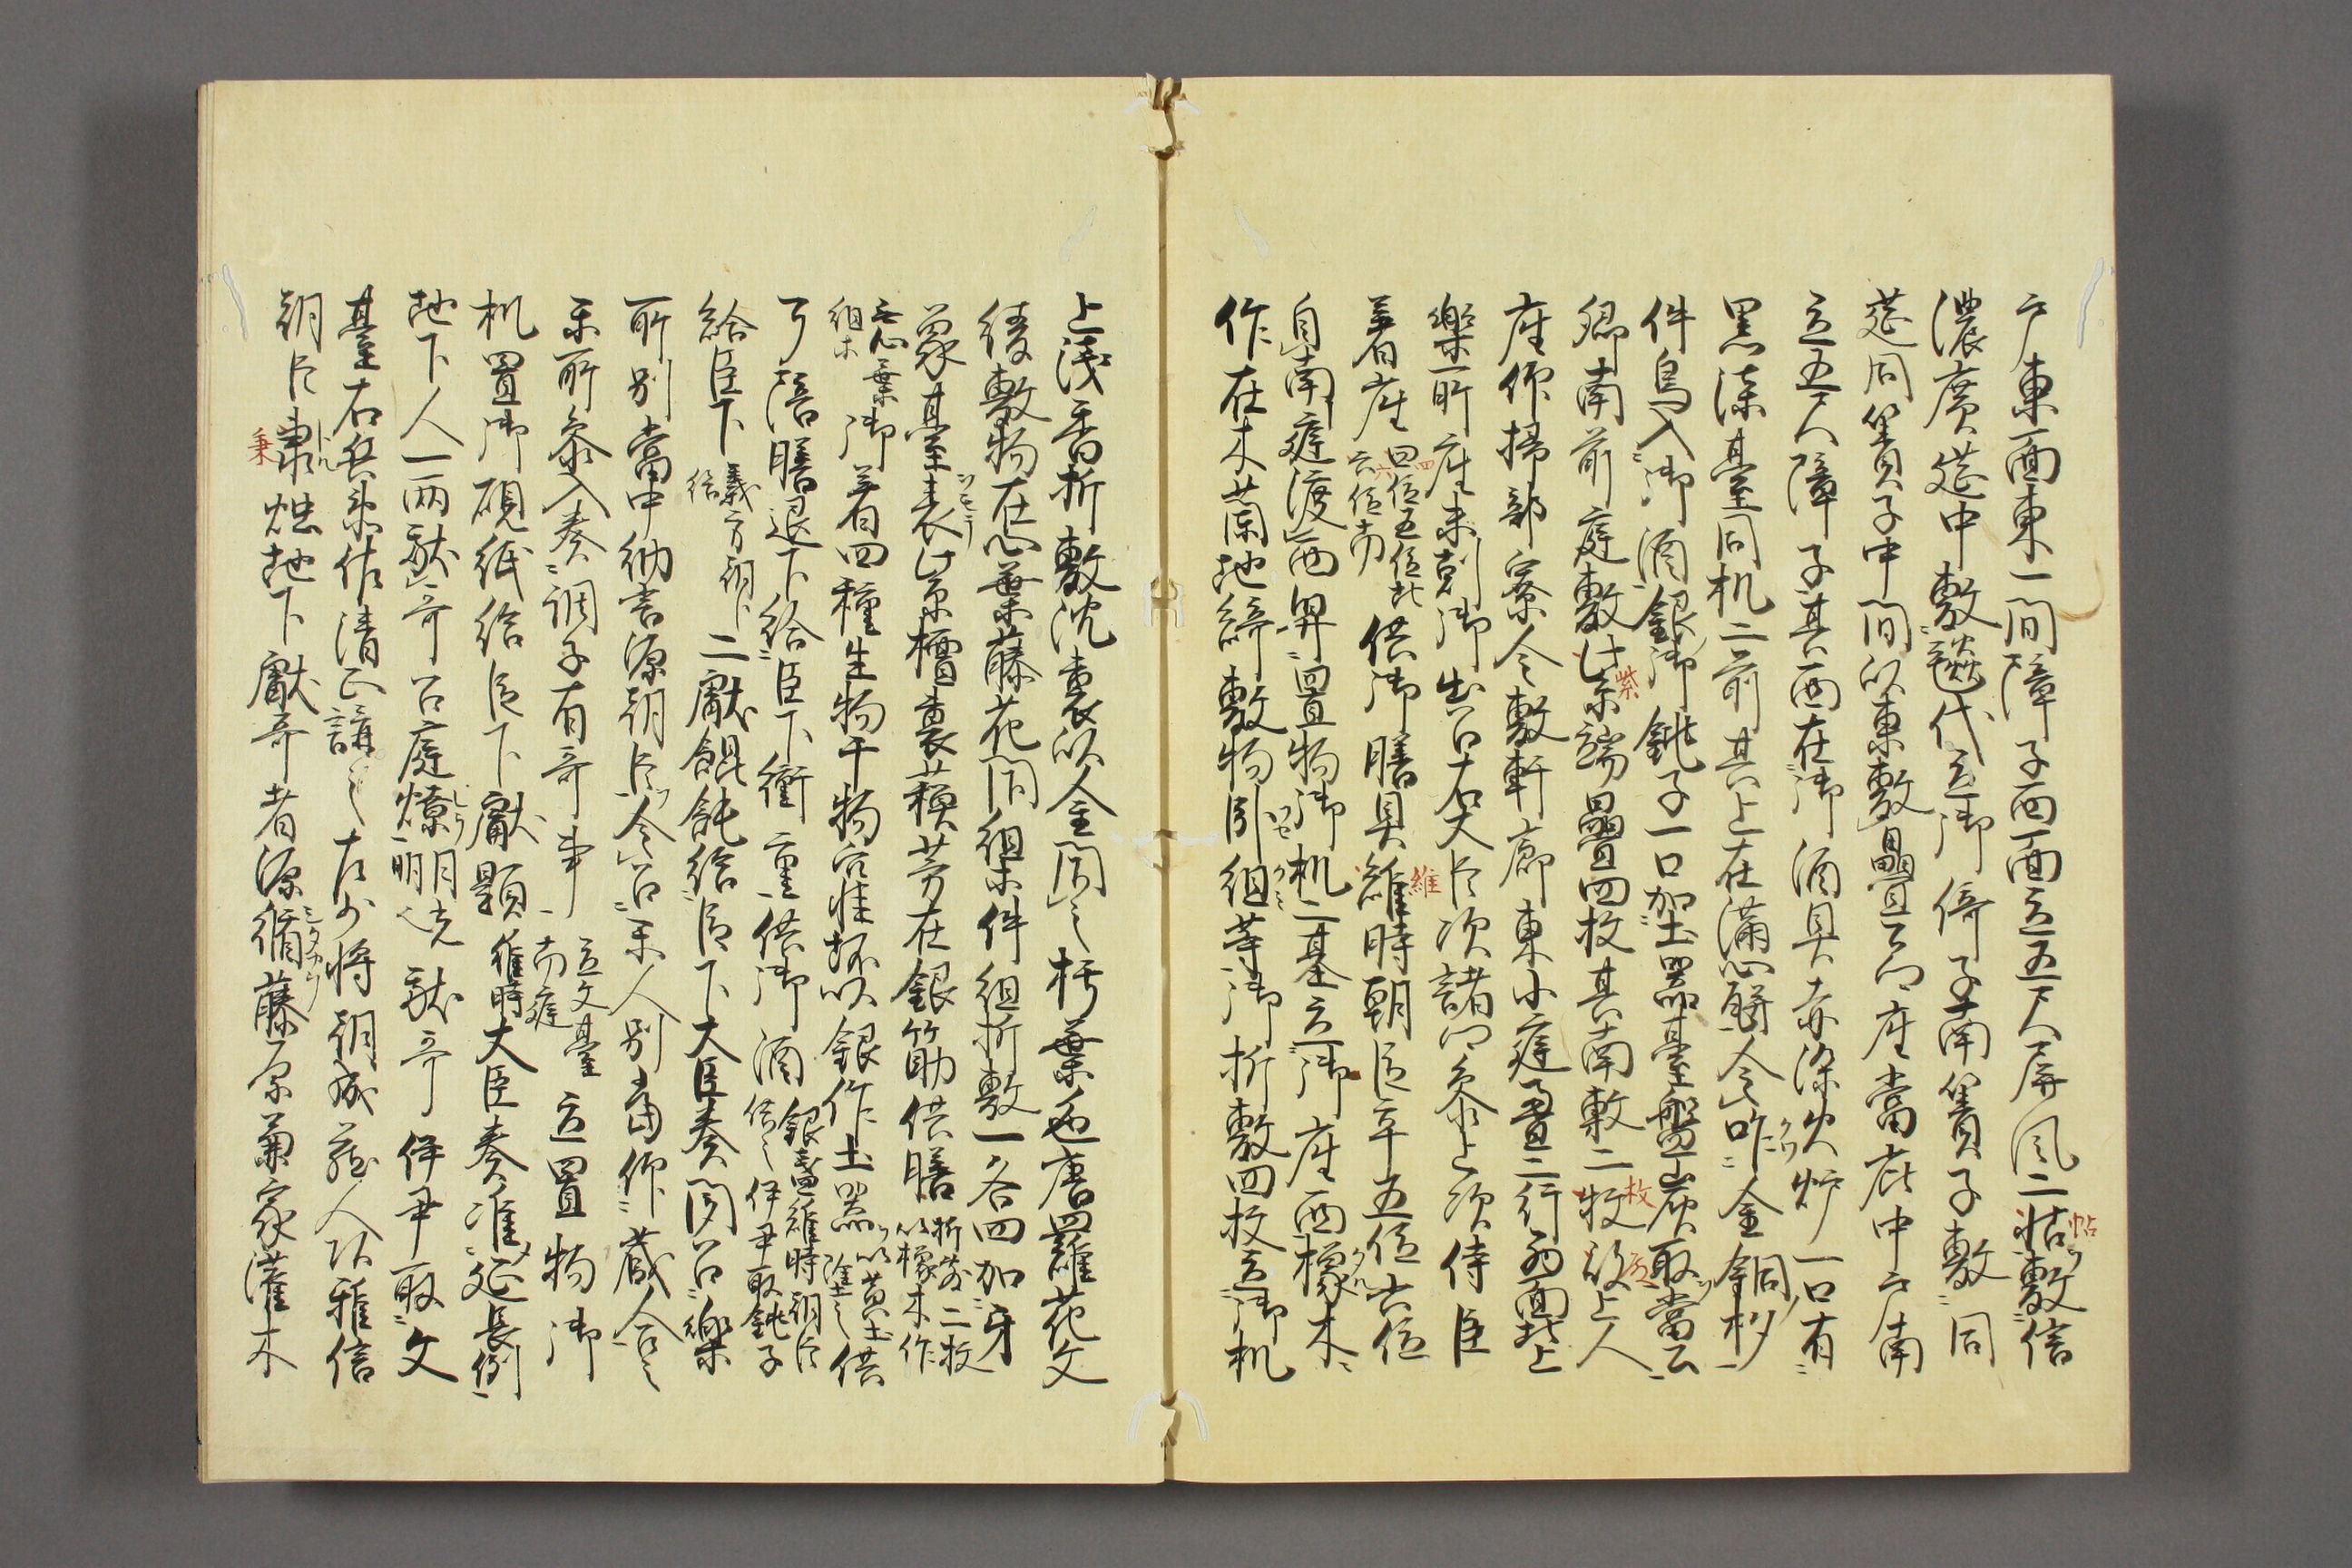 戸東西東一間障子西面立五尺屏風二帖敷信
濃廣莚中敷毯代立御倚子南簀子敷同
莚同簀子中間以東敷疊公卿座當庇中戸南
立五尺障子其西在御酒具赤漆火炉一口有
黒漆臺同机二前其上在滿心瓶令咋金銅杓
件鳥入御酒銀御銚子一口加土器臺盤炭取當公
卿南前庭敷紫端疊四枚其南敷二枚殿上人
座仰掃部寮令敷軒廊東小庭疊二行西面北上
樂所座未剋御出召右大臣次諸卿參上次侍臣
着座四位五位北六位南供御膳具維時朝臣率五位六位
自南庭渡西舁置物御机二基立御座西橡木
作在木蘭地綺敷物臥組等御折敷四枚立御机
上浅香折敷沈裏以金間之朽葉色唐羅花文
綾敷物在心葉藤花開組件組折敷一各四加牙
象其臺表紫檀裏蘓芳在銀筋供膳折敷二枚以橡木作
在心葉組木御着四種生物干物窪坏以銀作土器以黄土塗之供
了陪膳退下給臣下衝重供御酒銀盞維時朝臣供之伊尹取銚子
給臣下義方朝臣給二獻餛飩給臣下大臣奏聞召樂
所別當中納言源朝臣令召樂人別當仰藏人召之
樂所參入奏調子有哥事立文臺南庭立置物御
机置御硯紙給臣下獻題維時大臣奏准延長例
地下人一両献哥召庭燎明月光献哥伊尹取文
臺右兵衛佐清正講之左少将朝成蔵人所雅信
朝臣秉燭地下獻哥者源脩藤原菊家灌木